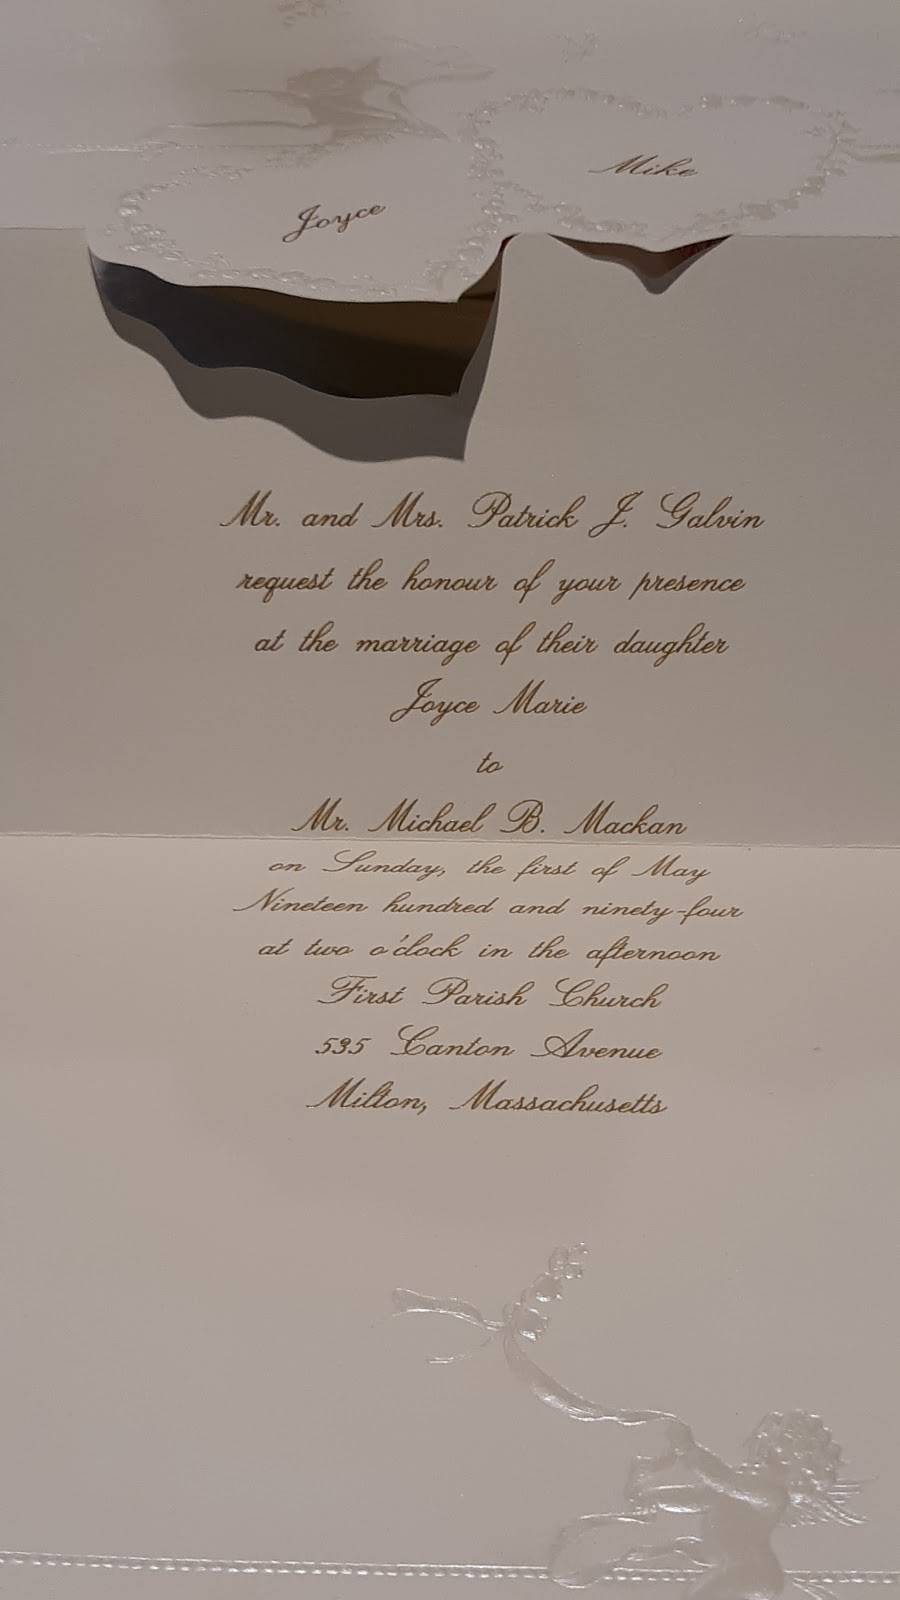 Mike
Joyce
Mr. and Mrs. Patrick J. Galvin
request the honour of your presence
at the marriage of their daughter
Joyce Marie
to
Mr. Michael B. Mackan
on Sunday, the first of May
Nineteen hundred and ninety-four
at two o'clock in the afternoon
First Parish Church
535 Canton Avenue
Milton, Massachusetts